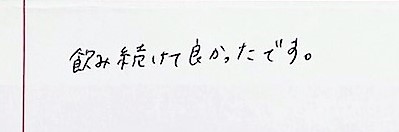 飲み続けて良かったです。